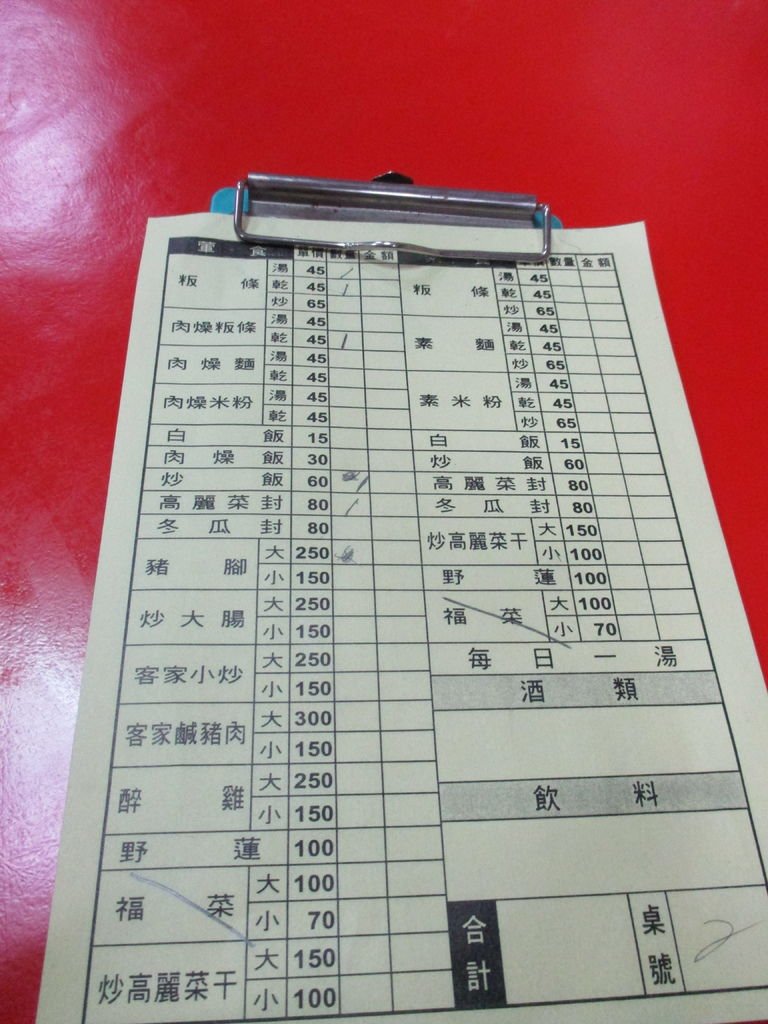 葷 食 單價 數量 金額
粄 條 湯 45 /
乾 45 /
炒 65
肉燥粄條 湯 45
乾 45 /
肉 燥 麵 湯 45
乾 45
肉燥米粉 湯 45
乾 45
白 飯 15
肉 燥 飯 30
炒 飯 60 /
高麗菜封 80 /
冬 瓜 封 80
豬 腳 大 250
小 150
炒大腸 大 250
小 150
客家小炒 大 250
小 150
客家鹹豬肉 大 300
小 150
醉 雞 大 250
小 150
野 蓮 100
福 菜 大 100
小 70
炒高麗菜干 大 150
小 100
單價 數量 金額
粄 條 湯 45
乾 45
炒 65
素 麵 湯 45
乾 45
炒 65
素米粉 湯 45
乾 45
炒 65
白 飯 15
炒 飯 60
高麗菜封 80
冬 瓜 封 80
炒高麗菜干 大 150
小 100
野 蓮 100
福 菜 大 100
小 70
每 日 一 湯
酒 類
飲 料
合計 桌號 2